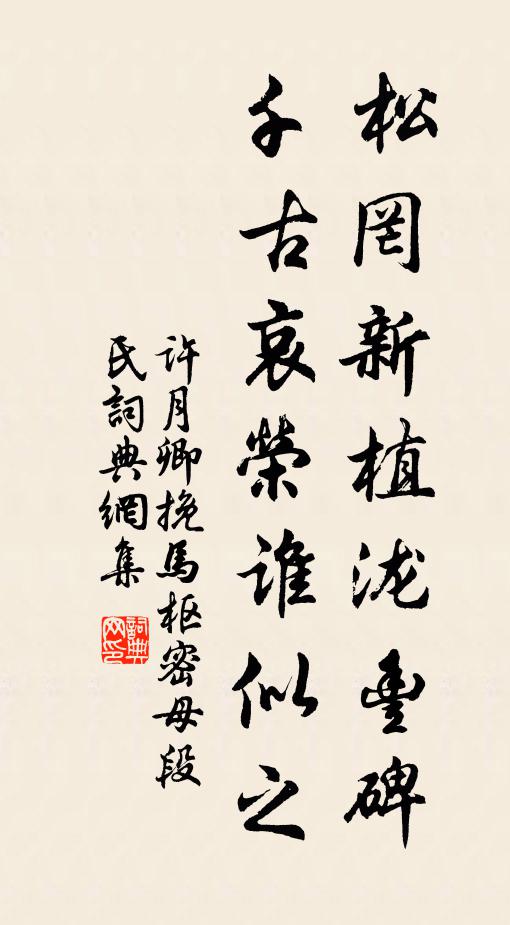 松罔新植泷豊碑
千古哀榮谁似之
许月卿挽馬枢密母段
氏詞典網集
詞典网印